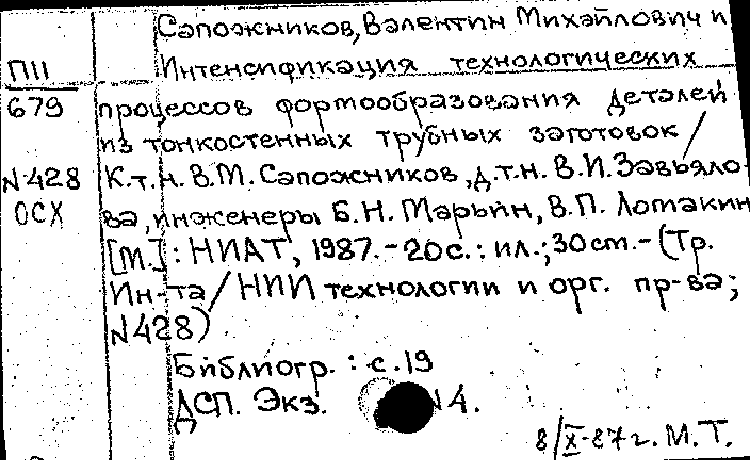 Сапожников, Валентин Михайлович и
ПII
Интенсификация технологических
679
процессов формообразования деталей
из тонкостенных трубных заготовок /
N-428
К.т.н. В.М. Сапожников, д.т.н. В.И. Завьяло
ОСХ
ва, инженеры Б.Н. Марьин, В.П. Лотакин
[М.]: НИАТ, 1987.-20с.: ил.; 30см.-(Тр.
Ин-та / НИИ технологии и орг. пр-ва;
N428)
Библиогр.: с.19
ДСП. Экз. N4.
8/X-87г. М.Т.